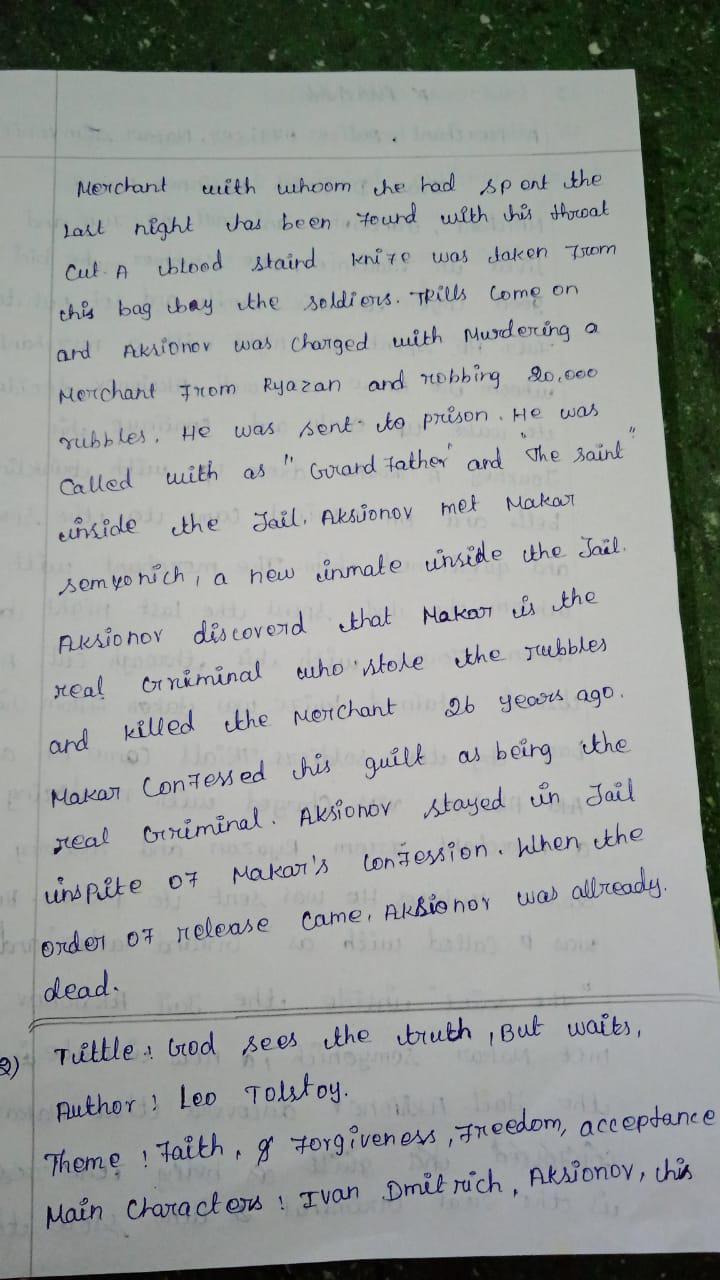 Merchant with whoom he had spent the
Last night has been Found with his throat
Cut. A blood staird knife was taken From
his bag bay the soldiers. TRills Come on
and Aksionov was Charged with Murdering a
Merchant From Ryazan and robbing 20,000
rubbles. He was sent to prison. He was
Called with as "Grand Father" and "The Saint"
inside the Jail. Aksionov met Makar
semyonich, a new inmate inside the Jail.
Aksionov discoverd that Makar is the
real Criminal who stole the rubbles
and killed the Merchant 26 years ago.
Makar Confessed his guilt as being the
real Criminal. Aksionov stayed in Jail
inspite of Makar's Confession. When the
order of release Came, Aksionov was allready.
dead.
2) Tittle: God sees the truth, But waits,
Author: Leo Tolstoy.
Theme: Faith, & Forgiveness, Freedom, acceptance
Main Characters: Ivan Dmitrich, Aksionov, his